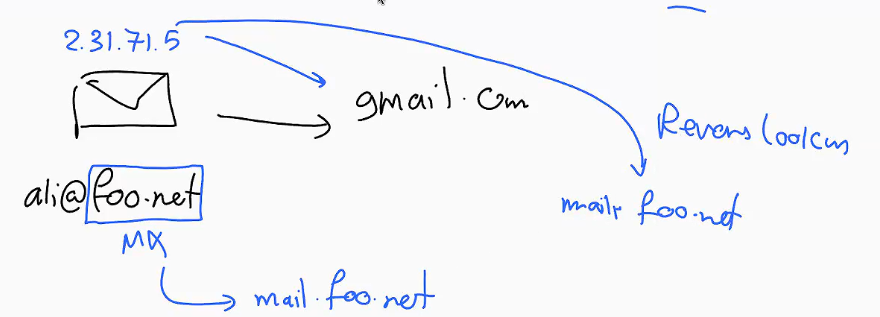 2.31.71.5
gmail.com
Revers lookup
ali@foo.net
mail. foo.net
MX
mail.foo.net